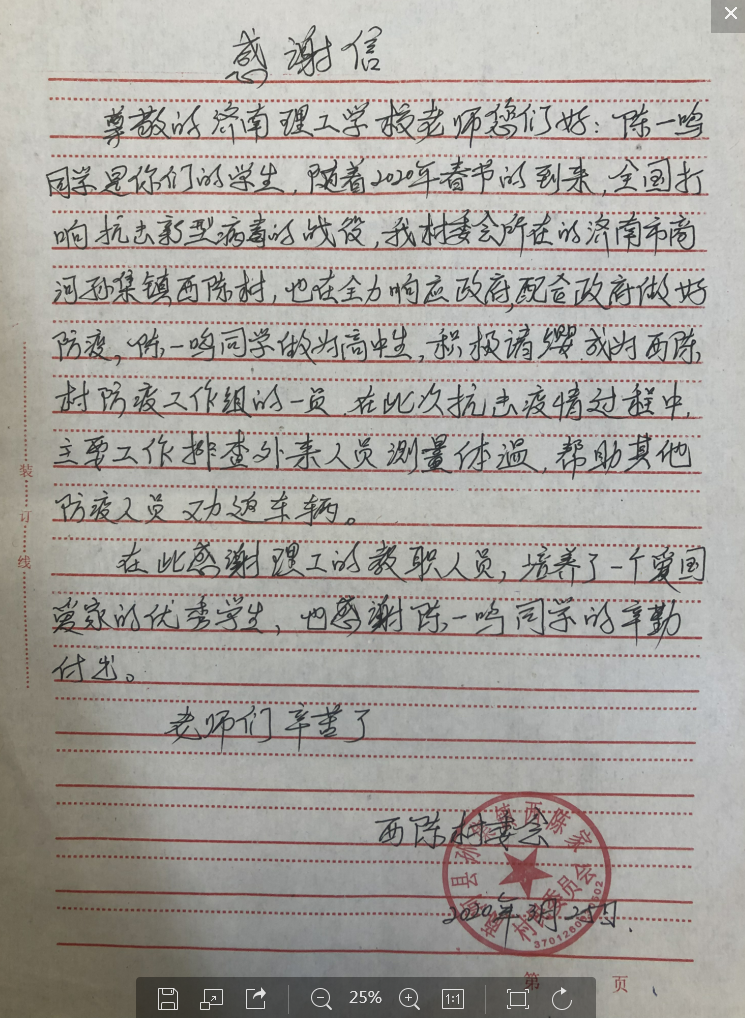 感谢信
尊敬的济南理工学校老师您们好：陈一鸣
同学是你们的学生，随着2020年春节的到来，全国打
响抗击新型病毒的战役，我村委会所在的济南市商
河孙集镇西陈村，也在全力响应政府，配合政府做好
防疫，陈一鸣同学做为高中生，积极请缨成为西陈
村防疫工作组的一员，在此次抗击疫情过程中，
主要工作排查外来人员测量体温，帮助其他
防疫人员劝返车辆。
在此感谢理工的教职人员，培养了一个爱国
爱家的优秀学生，也感谢陈一鸣同学的辛勤
付出。
老师们辛苦了
西陈村委会
2020年3月25日
装
订
线
第 页
25%
1:1